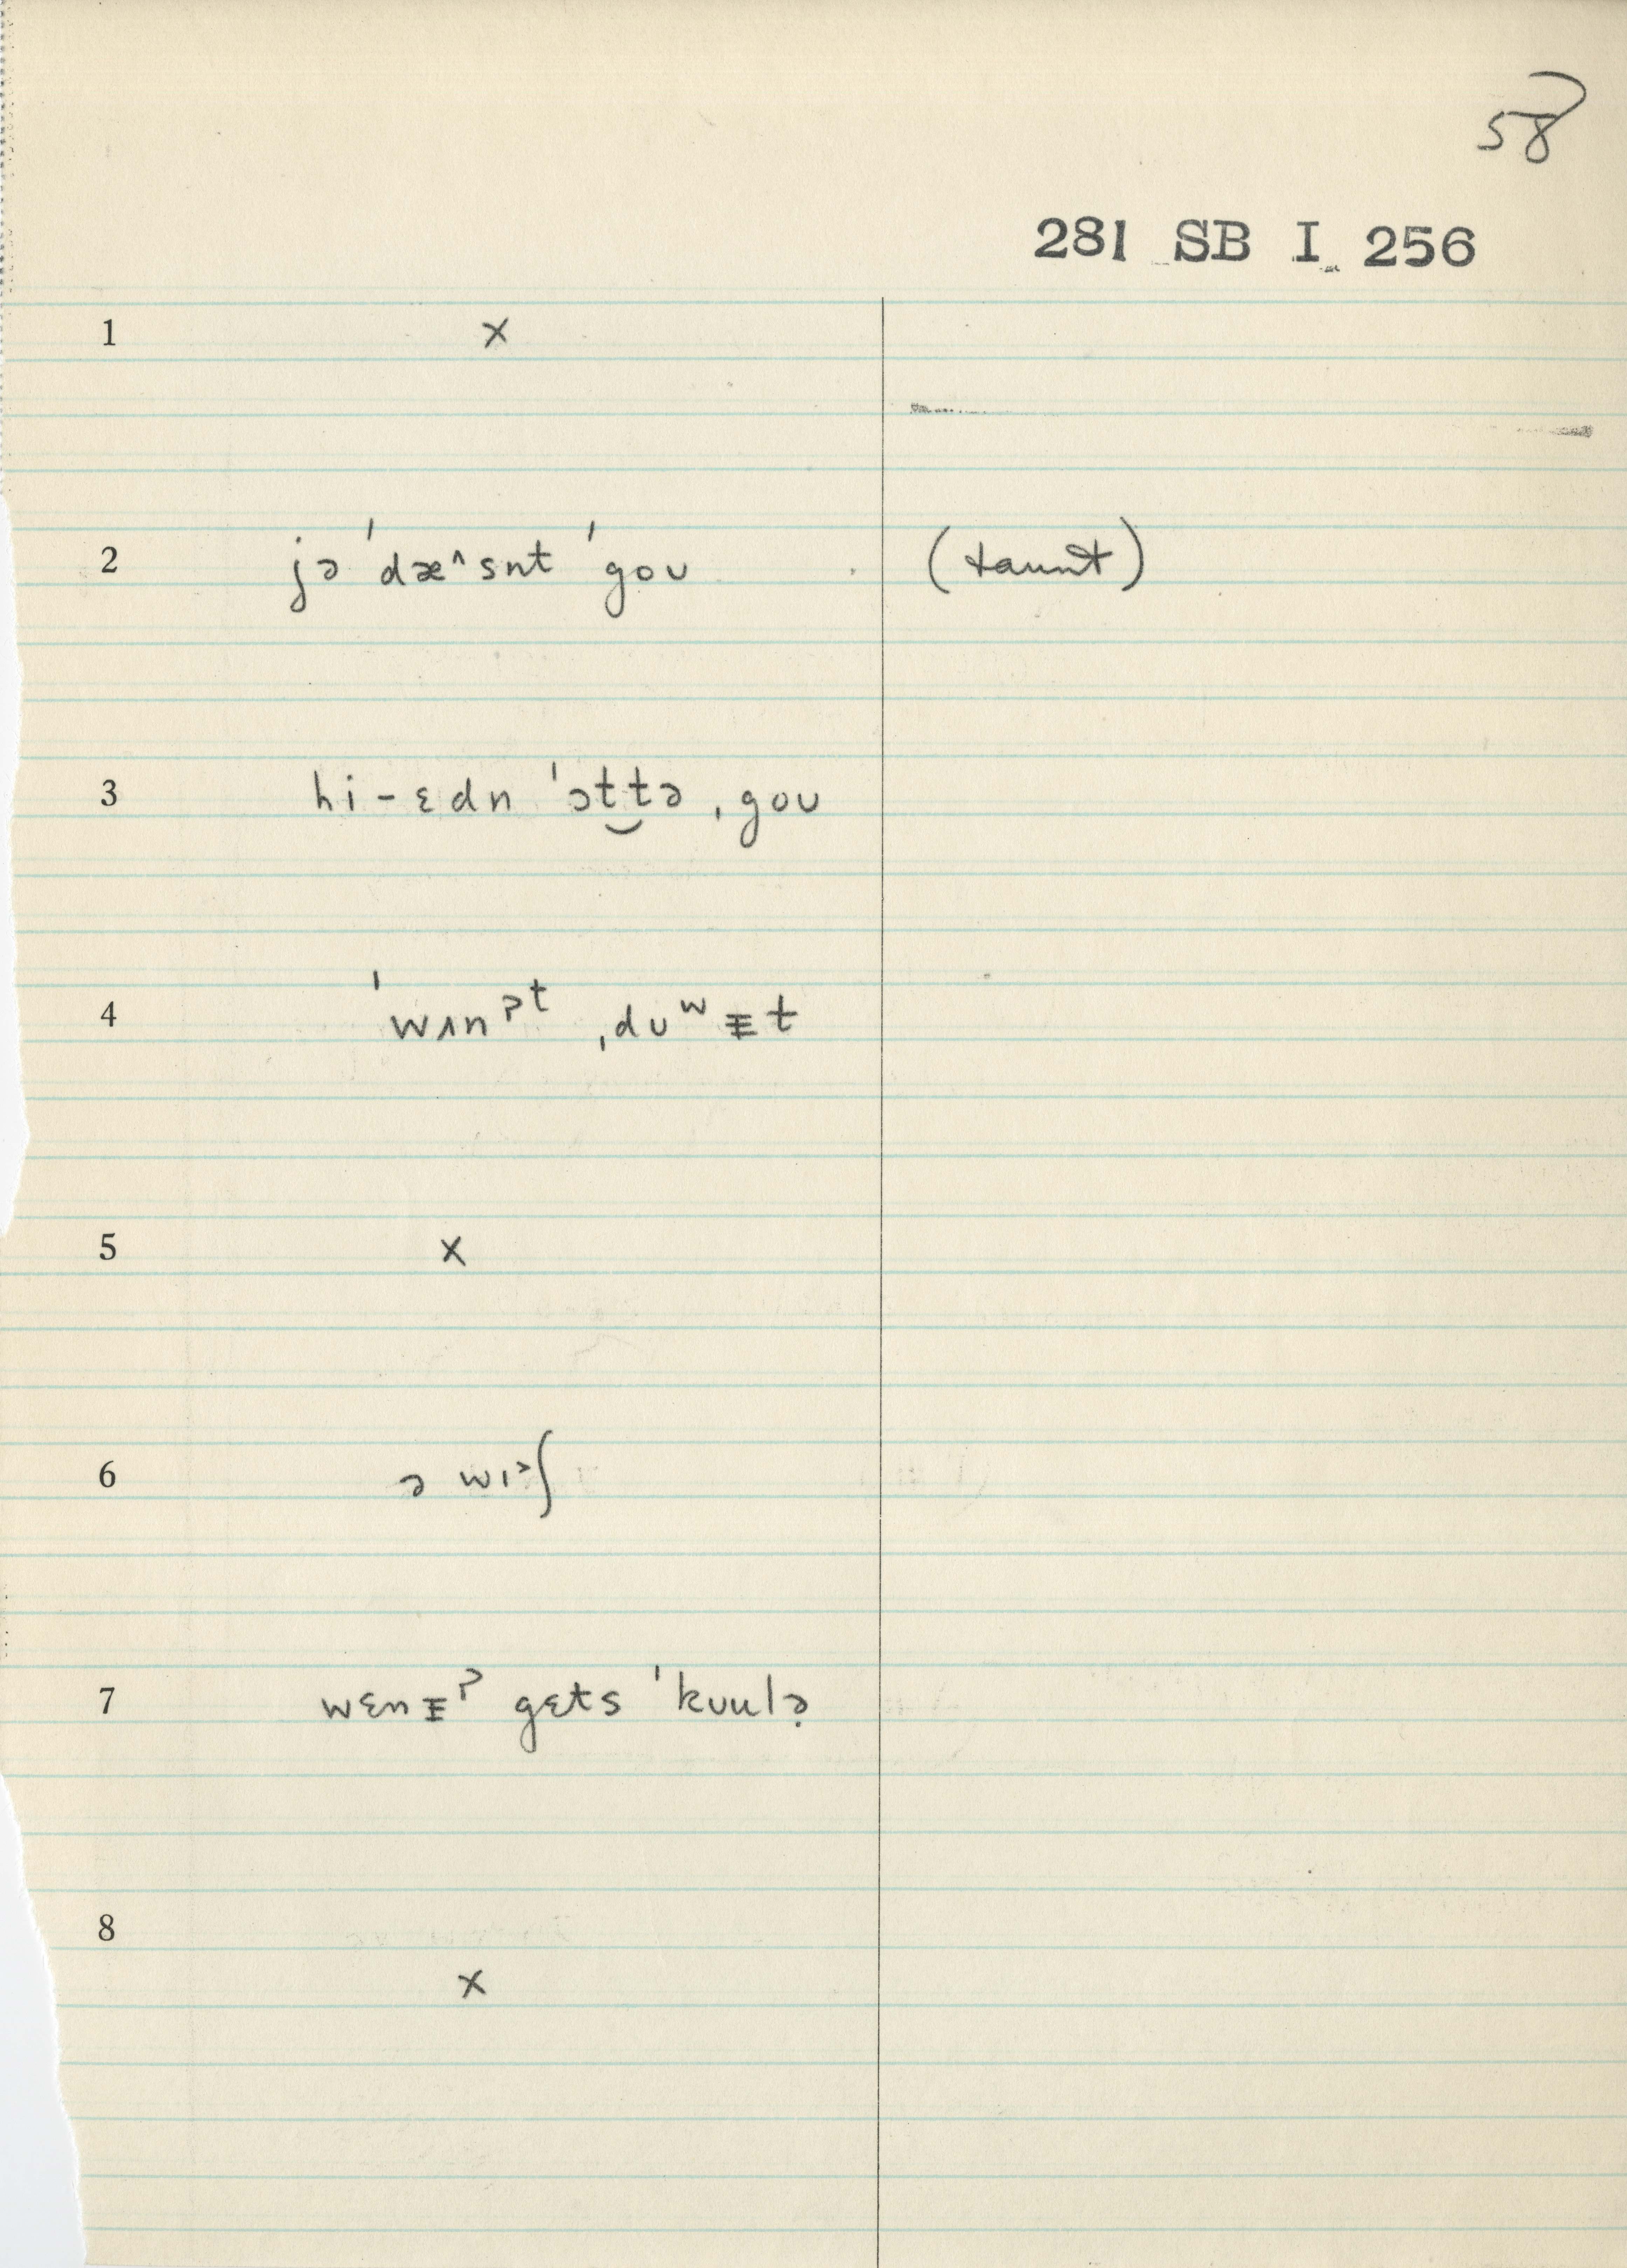 58
281 SB I 256
1 x
2 jə ˈdæ^snt ˈgoʊ (taunt)
3 hi-ɛdn ˈɔt‿tə ˌgoʊ
4 ˈwʌnˀᵗ ˌdʊʷᵻt
5 x
6 ə wɪ˃ʃ
7 wɛnᵻˀ gɛts ˈkʊulə̣
8 x